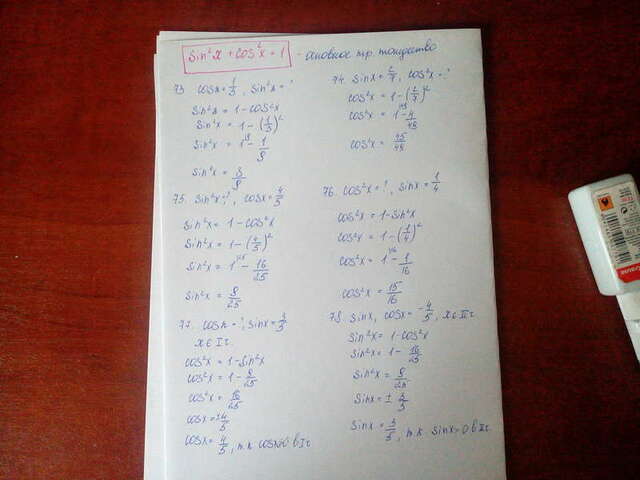 sin²x + cos²x = 1 - основное тр. тождество
73 cosx = 1/3, sin²x = ?
sin²x = 1 - cos²x
sin²x = 1 - (1/3)²
sin²x = 1 - 1/9
sin²x = 8/9
74. sinx = 2/7, cos²x = ?
cos²x = 1 - (2/7)²
cos²x = 1 - 4/49
cos²x = 45/49
75. sin²x = ?, cosx = 4/5
sin²x = 1 - cos²x
sin²x = 1 - (4/5)²
sin²x = 1 - 16/25
sin²x = 9/25
76. cos²x = ?, sinx = 1/4
cos²x = 1 - sin²x
cos²x = 1 - (1/4)²
cos²x = 1 - 1/16
cos²x = 15/16
77. cosx = ?, sinx = 3/5
x ∈ I г.
cos²x = 1 - sin²x
cos²x = 1 - 9/25
cos²x = 16/25
cosx = ±4/5
cosx = 4/5, т.к cosx>0 в I г
78. sinx, cosx = -4/5, x ∈ II г.
sin²x = 1 - cos²x
sin²x = 1 - 16/25
sin²x = 9/25
sinx = ± 3/5
sinx = 3/5, т.к sinx>0 в II г.
Krause